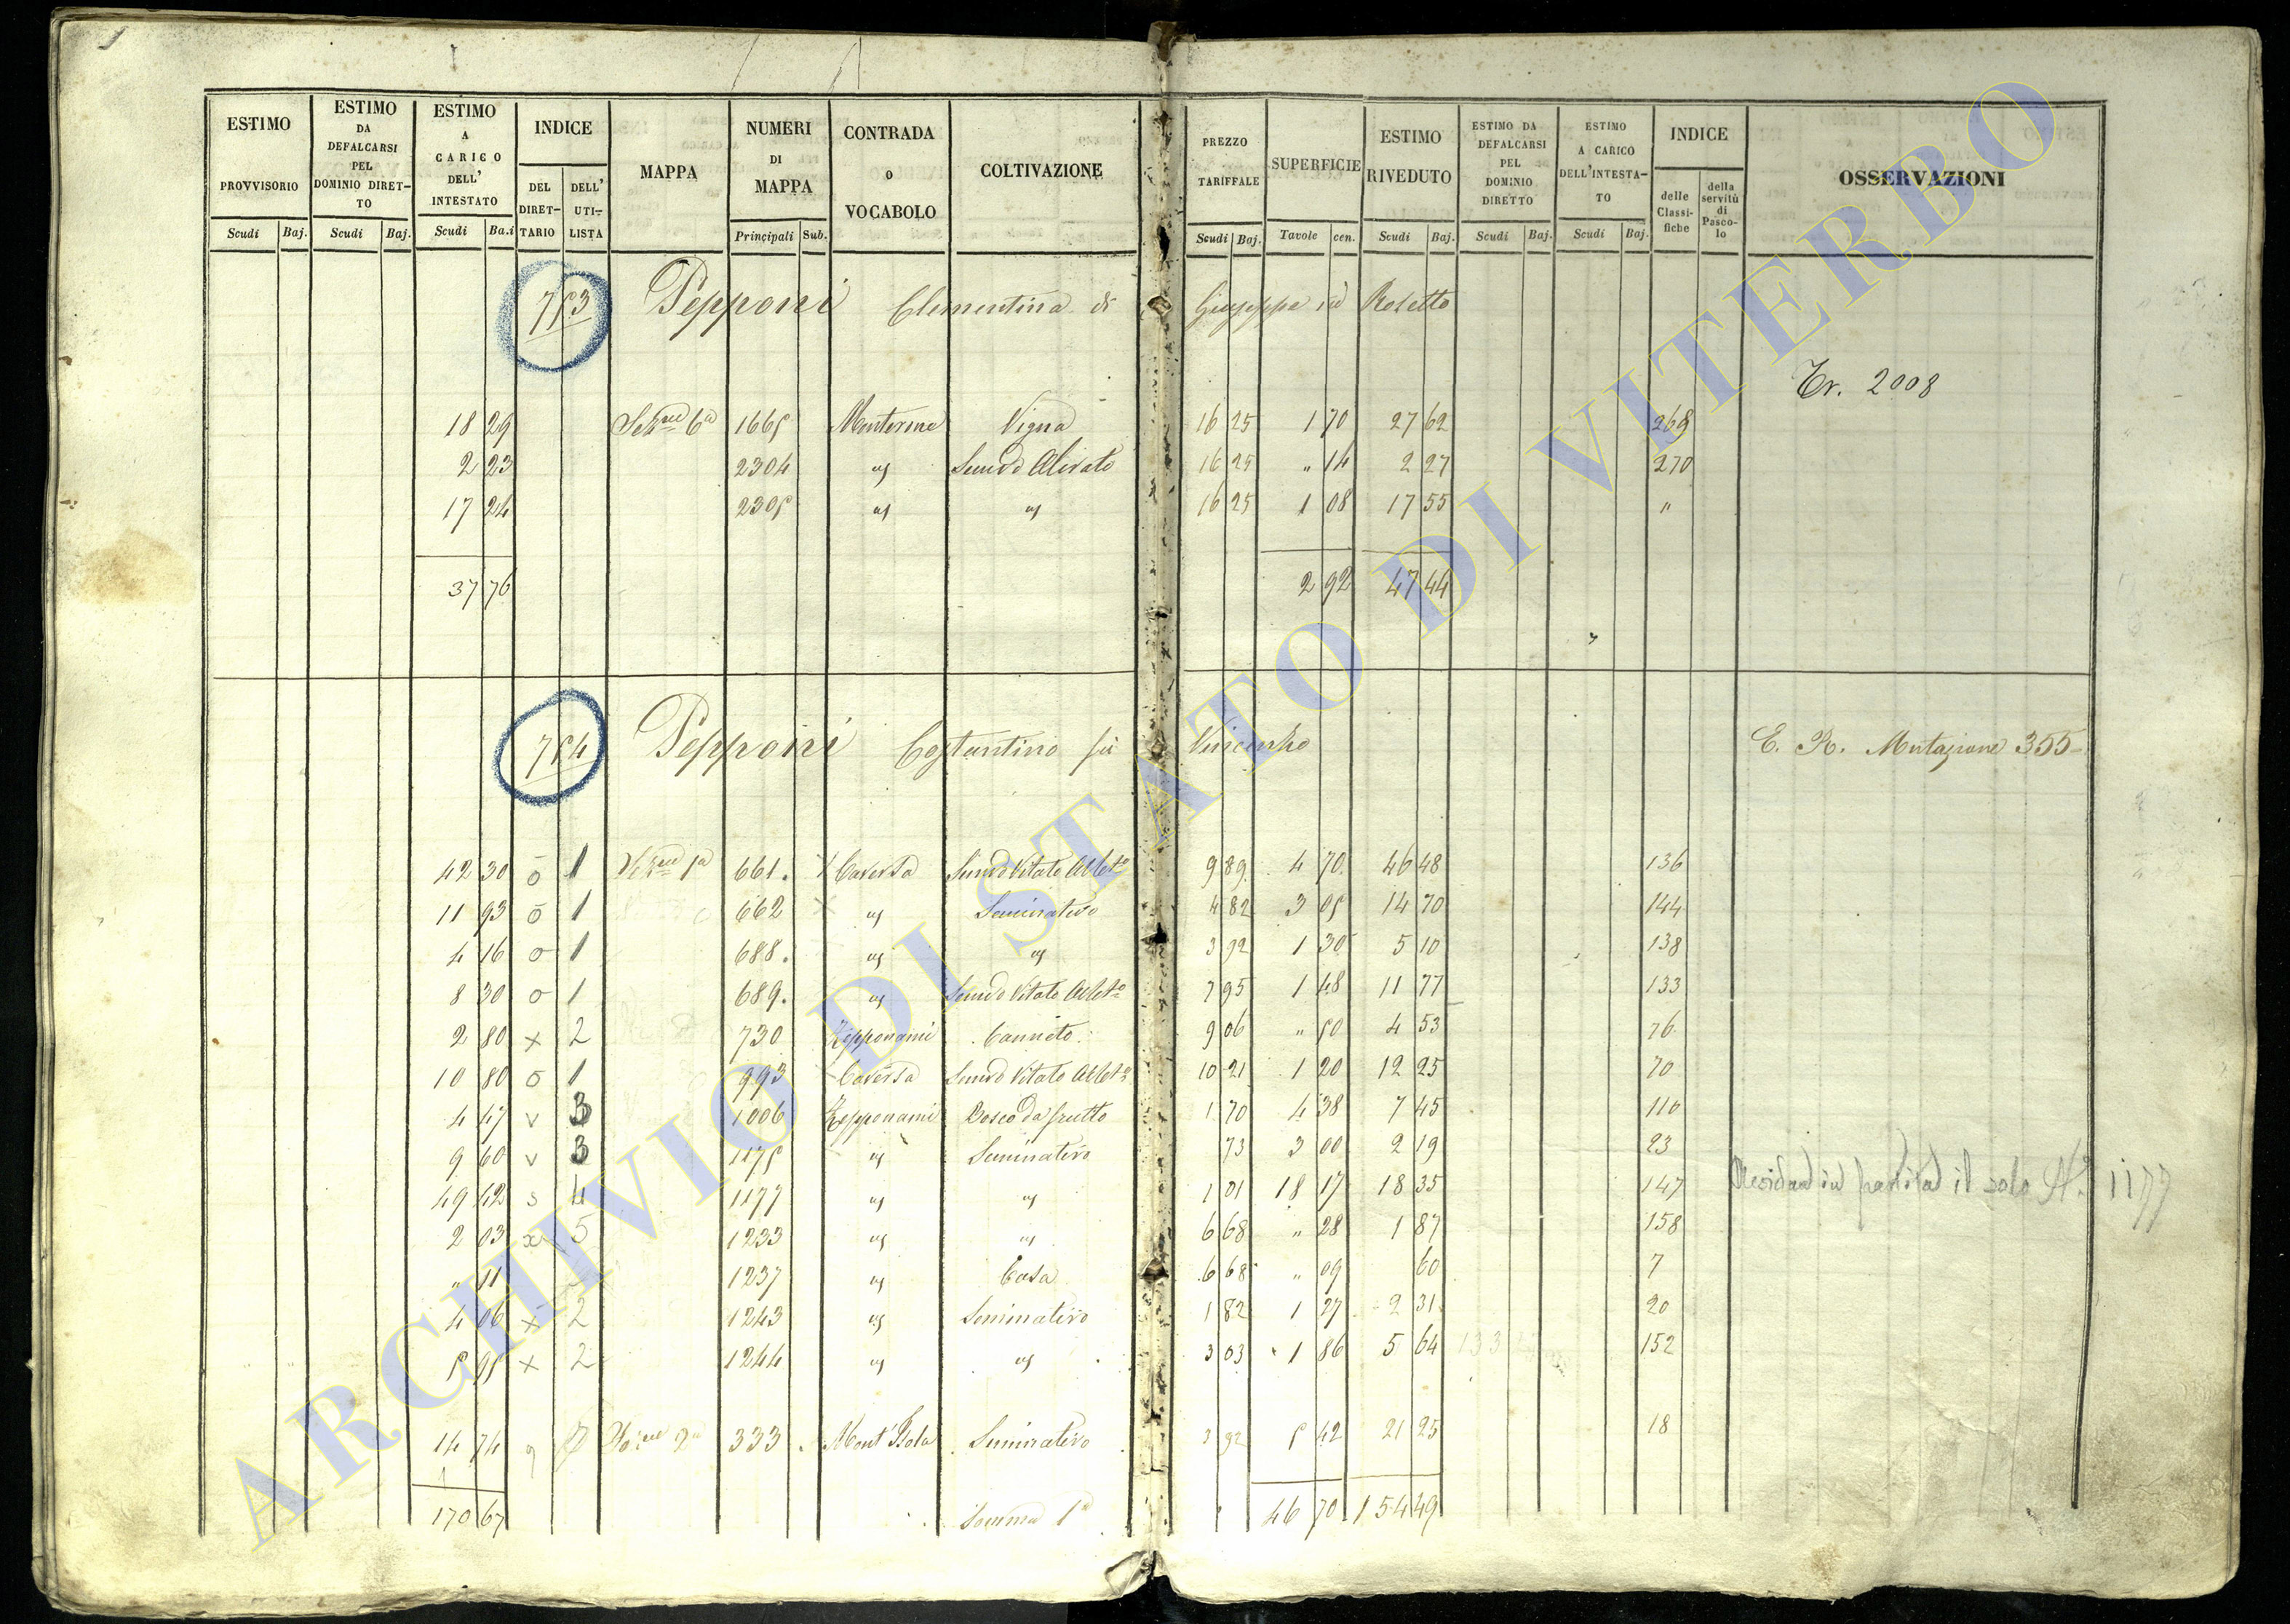 ESTIMO PROVVISORIO
ESTIMO DA DEFALCARSI PEL DOMINIO DIRET-TO
ESTIMO A CARICO DELL' INTESTATO
INDICE
DEL DIRET-TARIO
DELL' UTI-LISTA
MAPPA
NUMERI DI MAPPA
CONTRADA o VOCABOLO
COLTIVAZIONE
PREZZO TARIFFALE
SUPERFICIE
ESTIMO RIVEDUTO
ESTIMO DA DEFALCARSI PEL DOMINIO DIRETTO
ESTIMO A CARICO DELL'INTESTA-TO
INDICE
delle Classi-fiche
della servitù di Pasco-lo
OSSERVAZIONI
Scudi Baj. Scudi Baj. Scudi Ba.i Principali Sub. Scudi Baj. Tavole cen. Scudi Baj. Scudi Baj. Scudi Baj.
753 Pepponi Clementina di Giuseppe in
Tr. 2008
18 29 6a 1665 Monterine Vigna 16 25 1 70 27 62 268
2 23 2304 " Semvo Olivato 16 25 " 14 2 27 270
17 24 2305 " " 16 25 1 08 17 55 "
37 76 2 92 47 44
754 Pepponi Costantino fu Vincenzo E. R. Mutazione 355
42 30 o 1 1a 661. Caversa Semvo Vitato Albto 9 89 4 70 46 48 136
11 93 o 1 662 " Seminativo 4 82 3 05 14 70 144
4 16 o 1 688. " " 3 92 1 30 5 10 138
8 30 o 1 689. " Semvo Vitato Albto 7 95 1 48 11 77 133
2 80 x 2 730 Zepponami Canneto 9 06 " 50 4 53 76
10 80 o 1 993 Caversa Semvo Vitato Albto 10 21 1 20 12 25 70
4 47 v 3 1006 Zepponami Bosco da frutto 1 70 4 38 7 45 110
9 60 v 3 1175 " Seminativo 73 3 00 2 19 23
49 42 s 4 1177 " " 1 01 18 17 18 35 147 Residua in partita il solo N. 1177
2 03 x 5 1233 " " 6 68 " 28 1 87 158
" 11 1237 " Casa 6 68 " 09 60 7
4 06 x 2 1243 " Seminativo 1 82 1 27 2 31 20
5 95 x 2 1244 " " 3 03 1 86 5 64 152
14 74 333 Mont'Isola Seminativo 3 92 5 42 21 25 18
170 67 Somma 1a 46 70 154 49
ARCHIVIO DI STATO DI VITERBO